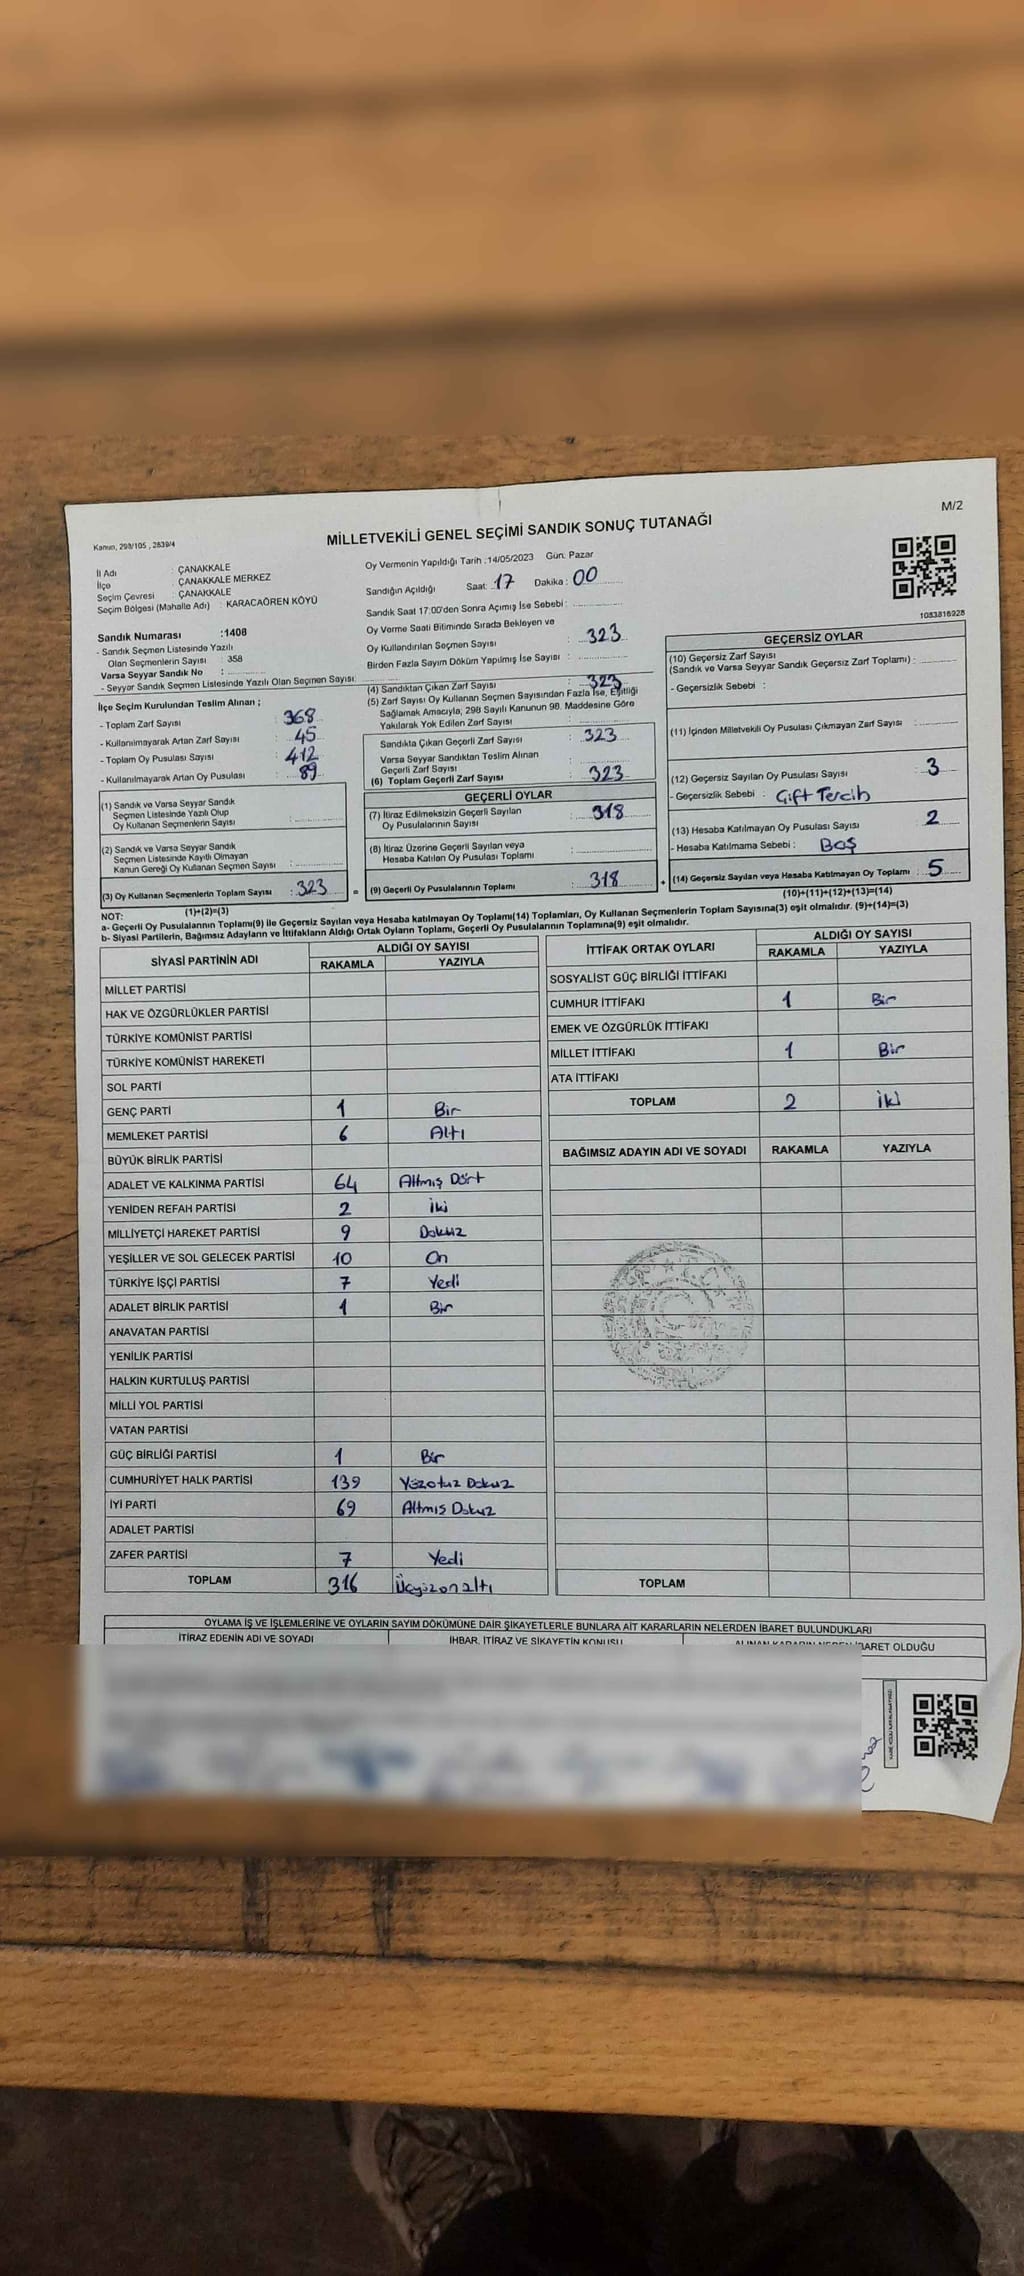 M/2
Kanun, 298/105 , 2839/4
MİLLETVEKİLİ GENEL SEÇİMİ SANDIK SONUÇ TUTANAĞI
İl Adı : ÇANAKKALE
İlçe : ÇANAKKALE MERKEZ
Seçim Çevresi : ÇANAKKALE
Seçim Bölgesi (Mahalle Adı) : KARACAÖREN KÖYÜ
Sandık Numarası :1408
- Sandık Seçmen Listesinde Yazılı
Olan Seçmenlerin Sayısı : 358
Varsa Seyyar Sandık No :
- Seyyar Sandık Seçmen Listesinde Yazılı Olan Seçmen Sayısı:
İlçe Seçim Kurulundan Teslim Alınan ;
- Toplam Zarf Sayısı : 368
- Kullanılmayarak Artan Zarf Sayısı : 45
- Toplam Oy Pusulası Sayısı : 412
- Kullanılmayarak Artan Oy Pusulası : 89
(1) Sandık ve Varsa Seyyar Sandık
Seçmen Listesinde Yazılı Olup
Oy Kullanan Seçmenlerin Sayısı :
(2) Sandık ve Varsa Seyyar Sandık
Seçmen Listesinde Kayıtlı Olmayan
Kanun Gereği Oy Kullanan Seçmen Sayısı :
(3) Oy Kullanan Seçmenlerin Toplam Sayısı : 323
(1)+(2)=(3)
Oy Vermenin Yapıldığı Tarih :14/05/2023 Gün: Pazar
Sandığın Açıldığı Saat: 17 Dakika : 00
Sandık Saat 17:00'den Sonra Açımış İse Sebebi :
Oy Verme Saati Bitiminde Sırada Bekleyen ve
Oy Kullandırılan Seçmen Sayısı : 323
Birden Fazla Sayım Döküm Yapılmış İse Sayısı :
(4) Sandıktan Çıkan Zarf Sayısı : 323
(5) Zarf Sayısı Oy Kullanan Seçmen Sayısından Fazla İse, Eşitliği
Sağlamak Amacıyla; 298 Sayılı Kanunun 98. Maddesine Göre
Yakılarak Yok Edilen Zarf Sayısı :
Sandıkta Çıkan Geçerli Zarf Sayısı : 323
Varsa Seyyar Sandıktan Teslim Alınan
Geçerli Zarf Sayısı :
(6) Toplam Geçerli Zarf Sayısı : 323
GEÇERLİ OYLAR
(7) İtiraz Edilmeksizin Geçerli Sayılan
Oy Pusulalarının Sayısı : 318
(8) İtiraz Üzerine Geçerli Sayılan veya
Hesaba Katılan Oy Pusulası Toplamı :
= (9) Geçerli Oy Pusulalarının Toplamı : 318
1083816928
GEÇERSİZ OYLAR
(10) Geçersiz Zarf Sayısı
(Sandık ve Varsa Seyyar Sandık Geçersiz Zarf Toplamı) :
- Geçersizlik Sebebi :
(11) İçinden Milletvekili Oy Pusulası Çıkmayan Zarf Sayısı :
(12) Geçersiz Sayılan Oy Pusulası Sayısı : 3
- Geçersizlik Sebebi : Çift Tercih
(13) Hesaba Katılmayan Oy Pusulası Sayısı : 2
- Hesaba Katılmama Sebebi : Boş
+ (14) Geçersiz Sayılan veya Hesaba Katılmayan Oy Toplamı : 5
(10)+(11)+(12)+(13)=(14)
NOT:
a- Geçerli Oy Pusulalarının Toplamı(9) ile Geçersiz Sayılan veya Hesaba katılmayan Oy Toplamı(14) Toplamları, Oy Kullanan Seçmenlerin Toplam Sayısına(3) eşit olmalıdır. (9)+(14)=(3)
b- Siyasi Partilerin, Bağımsız Adayların ve İttifakların Aldığı Ortak Oyların Toplamı, Geçerli Oy Pusulalarının Toplamına(9) eşit olmalıdır.
SİYASİ PARTİNİN ADI ALDIĞI OY SAYISI
RAKAMLA YAZIYLA
MİLLET PARTİSİ
HAK VE ÖZGÜRLÜKLER PARTİSİ
TÜRKİYE KOMÜNİST PARTİSİ
TÜRKİYE KOMÜNİST HAREKETİ
SOL PARTİ
GENÇ PARTİ 1 Bir
MEMLEKET PARTİSİ 6 Altı
BÜYÜK BİRLİK PARTİSİ
ADALET VE KALKINMA PARTİSİ 64 Altmış Dört
YENİDEN REFAH PARTİSİ 2 İki
MİLLİYETÇİ HAREKET PARTİSİ 9 Dokuz
YEŞİLLER VE SOL GELECEK PARTİSİ 10 On
TÜRKİYE İŞÇİ PARTİSİ 7 Yedi
ADALET BİRLİK PARTİSİ 1 Bir
ANAVATAN PARTİSİ
YENİLİK PARTİSİ
HALKIN KURTULUŞ PARTİSİ
MİLLİ YOL PARTİSİ
VATAN PARTİSİ
GÜÇ BİRLİĞİ PARTİSİ 1 Bir
CUMHURİYET HALK PARTİSİ 139 Yüzotuz Dokuz
İYİ PARTİ 69 Altmış Dokuz
ADALET PARTİSİ
ZAFER PARTİSİ 7 Yedi
TOPLAM 316 Üçyüzonaltı
İTTİFAK ORTAK OYLARI ALDIĞI OY SAYISI
RAKAMLA YAZIYLA
SOSYALİST GÜÇ BİRLİĞİ İTTİFAKI
CUMHUR İTTİFAKI 1 Bir
EMEK VE ÖZGÜRLÜK İTTİFAKI
MİLLET İTTİFAKI 1 Bir
ATA İTTİFAKI
TOPLAM 2 İki
BAĞIMSIZ ADAYIN ADI VE SOYADI RAKAMLA YAZIYLA
TOPLAM
OYLAMA İŞ VE İŞLEMLERİNE VE OYLARIN SAYIM DÖKÜMÜNE DAİR ŞİKAYETLERLE BUNLARA AİT KARARLARIN NELERDEN İBARET BULUNDUKLARI
İTİRAZ EDENİN ADI VE SOYADI İHBAR, İTİRAZ VE ŞİKAYETİN KONUSU ALINAN KARARIN NEDEN İBARET OLDUĞU